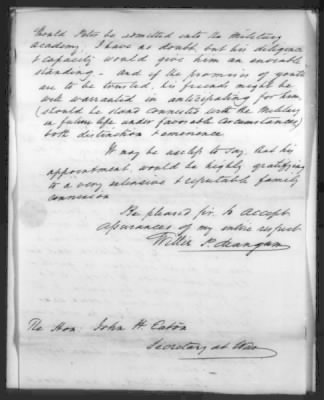 Should Peter be admitted into the Military
academy, I have no doubt, but his diligence
& capacity would give him an enviable
standing. - And if the promises of youth
are to be trusted, his friends might be
well warranted in anticipating for him,
(should he stand connected with the Military
in future life under favorable circumstances)
both distinction & eminence
It may be useless to say, that his
appointment, would be highly gratifying
to a very extensive & reputable family
connexion
Be pleased Sir, to accept
assurances of my entire respect
Willie P. Mangum
The Hon. John H. Eaton
Secretary at War